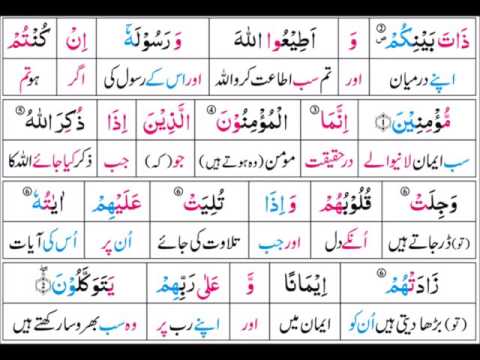 ذَاتَ بَيْنِكُمْ ② ص وَ اَطِيْعُوا اللهَ وَ رَسُوْلَهٗۤ اِنْ كُنْتُمْ
اپنے درمیان اور تم سب اطاعت کرو اللہ اور اس کے رسول کی اگر ہو تم
مُّؤْمِنِيْنَ ① اِنَّمَا ③ الْمُؤْمِنُوْنَ ④ الَّذِيْنَ اِذَا ذُكِرَ اللهُ ⑤
سب ایمان لانیوالے درحقیقت مومن (وہ ہوتے ہیں) جو (کہ) جب ذکر کیا جائے اللہ کا
وَجِلَتْ ⑥ قُلُوْبُهُمْ وَ اِذَا تُلِيَتْ ⑥ عَلَيْهِمْ اٰيٰتُهٗ
(تو) ڈر جاتے ہیں اُنکے دل اور جب تلاوت کی جائے اُن پر اُس کی آیات
زَادَتْهُمْ ⑥ اِيْمَانًا وَّ عَلٰى رَبِّهِمْ يَتَوَكَّلُوْنَ
(تو) بڑھا دیتی ہیں اُن کو ایمان میں اور اپنے رب پر وہ سب بھروسا رکھتے ہیں